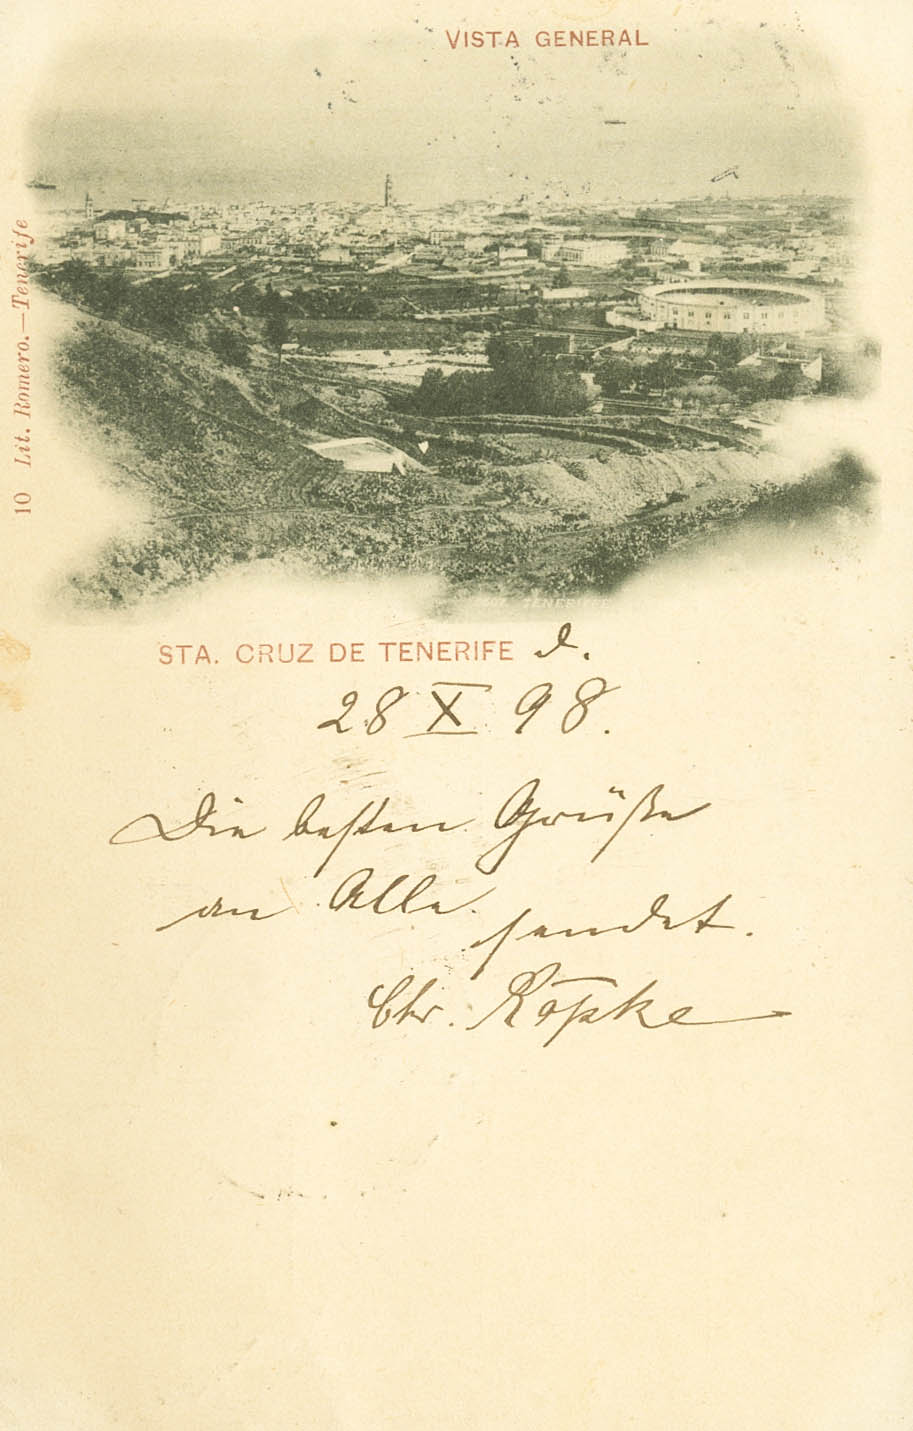 VISTA GENERAL
10 Lit. Romero.—Tenerife
STA. CRUZ DE TENERIFE d.
28 X 98.
Die besten Grüße
an Alle
sendet.
Chr. Röpke